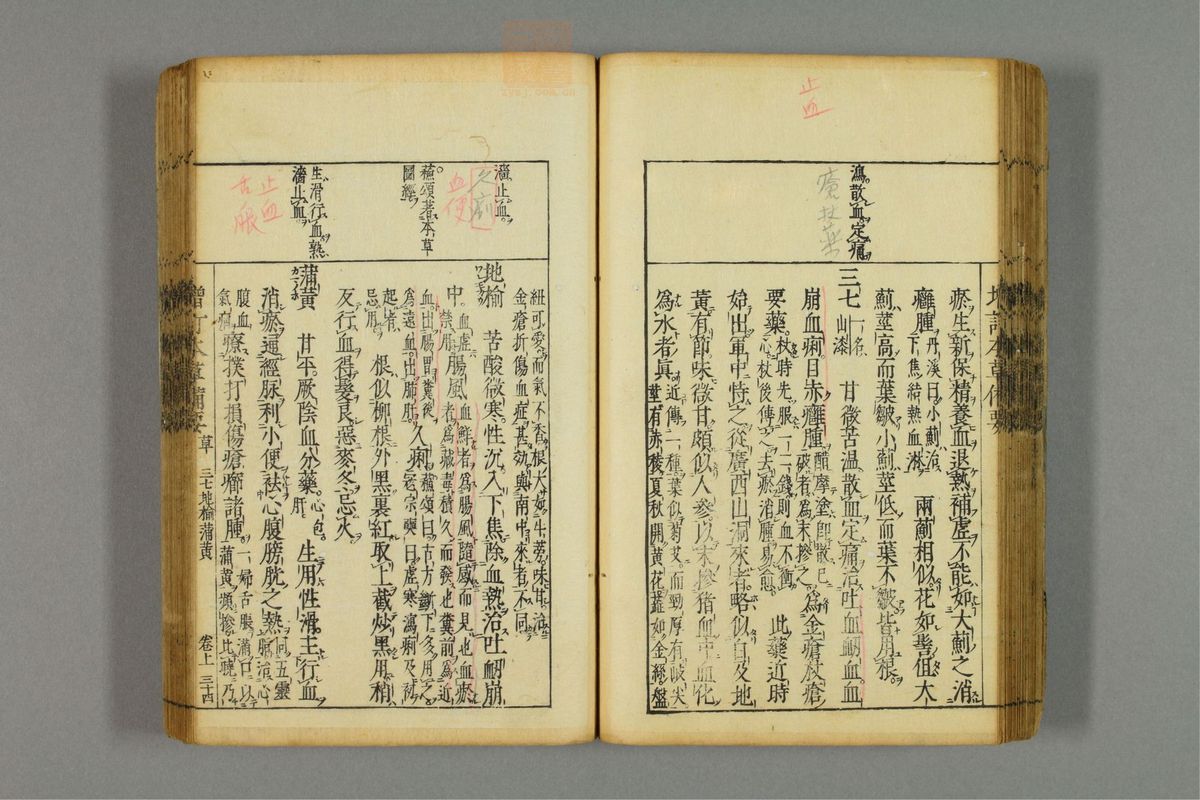 止血
瀉散血定痛
瘀生新保精養血退熱補虛不能如大薊之消
癰腫丹溪曰小薊治下焦結熱血淋 兩薊相似花如髻但大
薊莖高而葉皺小薊莖低而葉不皺皆用根
三七一名山漆 甘微苦溫散血定痛治吐血衂血血
崩血痢目赤癰腫醋摩塗即散已破者為末摻之為金瘡杖瘡
要藥杖時先服一二錢則血不衝心杖後傅之去瘀消腫易愈 此藥近時
始出軍中恃之從廣西山洞來者略似白及地
黃有節味微甘頗似人參以末摻豬血中血化
為水者眞近傳一種葉似菊艾而勁厚有岐尖莖有赤稜夏秋開黃花蕋如金絲盤
濇止血
蘇頌著本草圖經
生滑行血熟濇止血
血便
止血
舌脹
紐可愛而氣不香根大如牛蒡味甘治金瘡折傷血症甚効與南中來者不同
地榆 苦酸微寒性沉入下焦除血熱治吐衂崩
中血虛禁用腸風血鮮者為腸風隨感而見也血瘀者為藏毒積久而發也糞前為近
血出腸胃糞後為遠血出肺肝久痢蘇頌曰古方斷下多用之寇宗奭曰虛寒瀉痢及初
起者忌用 根似柳根外黑裏紅取上截炒黑用稍
反行血得髮良惡麥冬忌火
蒲黃 甘平厥陰血分藥心包肝 生用性滑主行血
消瘀通經脉利小便祛心腹膀胱之熱同五靈脂治心
腹血氣痛療撲打損傷瘡癤諸腫一婦舌脹滿口以蒲黃頻摻比曉乃
增訂本草備要 草 三七地榆蒲黃 卷上 三十四